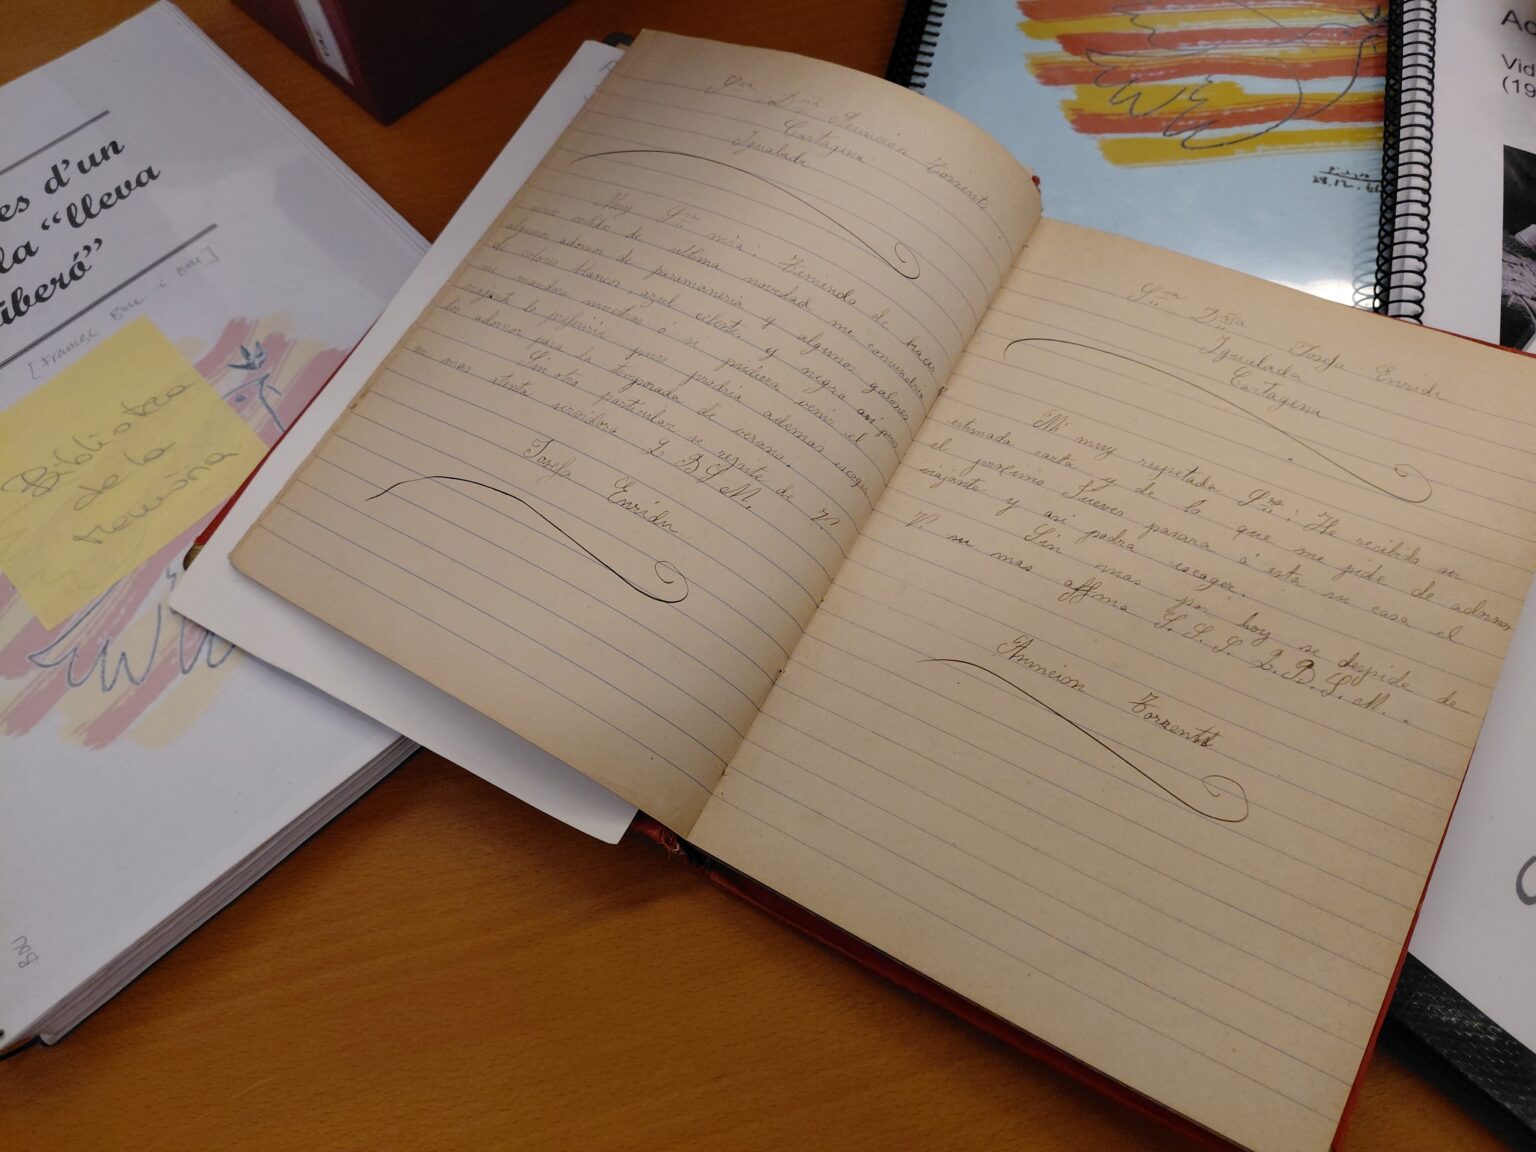 es d'un
la "lleva
iberó"
[Francesc Bou i Bou]
Biblioteca
de la
Memòria
BOU
Sra Dña Anuncion Torrents
Cartagena
Igualada
Muy Sra mia: Teniendo de hacer
una de ultima novedad me convendria
algunos adornos de pasamaneria y algunos galones
d colores blanco, azul celeste y negro asi pues
me mandara muestras ó si pudiera venir el
viajante lo preferiria pues podria ademas escoger
los adornos para la temporada de verano.
Sin otro particular se repite de V
su mas atenta servidora L. B. S. M.
Josefa Enrich
Sra Dña Josefa Enrich
Igualada
Cartagena
Mi muy respetada Sra: He recibido su
estimada carta y de lo que me pide de adornos
el proximo Jueves pasara á esta su casa el
viajante y asi podra escoger.
Sin mas por hoy se despide de
V su mas affma S. S. S. Q. B. S. M.
Anuncion Torrents
Vid
(19